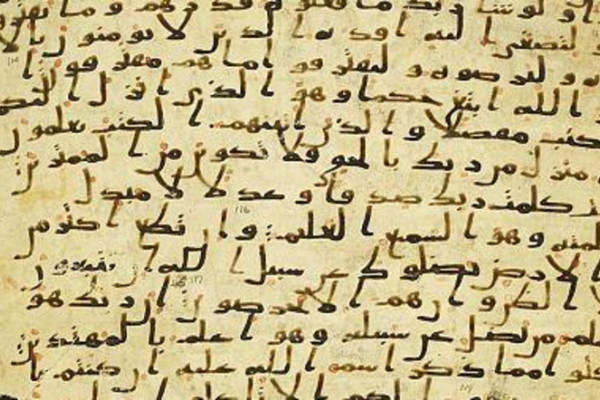 ولو شا ربك ما فعلوه فذرهم وما يفترو
ولتصغى اليه افده الذين لا يومنون با
وليرضوه وليقترفوا ما هم مقترفون ا
الله ابتغى حكما وهو الذى انزل اليكم
مفصلا والذين اتينهم الكتب يعلمون
منزل من ربك بالحق فلا تكونن من الممترين
كلمت ربك صدقا وعدلا لا مبدل
وهو السميع العليم وان تطع اكثر من
الارض يضلوك عن سبيل الله ان يتبعون
الظن وان هم الا يخرصون ان ربك هو
من يضل عن سبيله وهو اعلم بالمهتدين
مما ذكر اسم الله عليه ان كنتم با